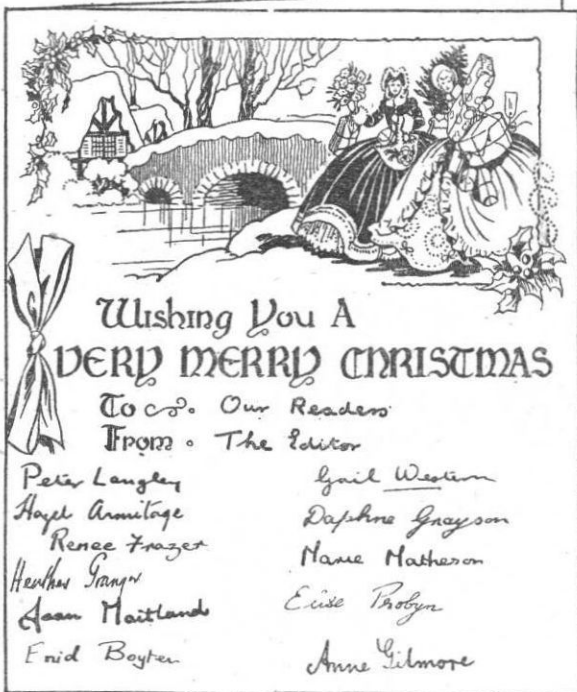 Wishing You A
VERY MERRY CHRISTMAS
To Our Readers
From The Editor
Peter Langley
Hazel Armitage
Renee Frazer
Heather Granger
Joan Maitland
Enid Boyten
Gail Western
Daphne Grayson
Marie Matheson
Elise Probyn
Anne Gilmore